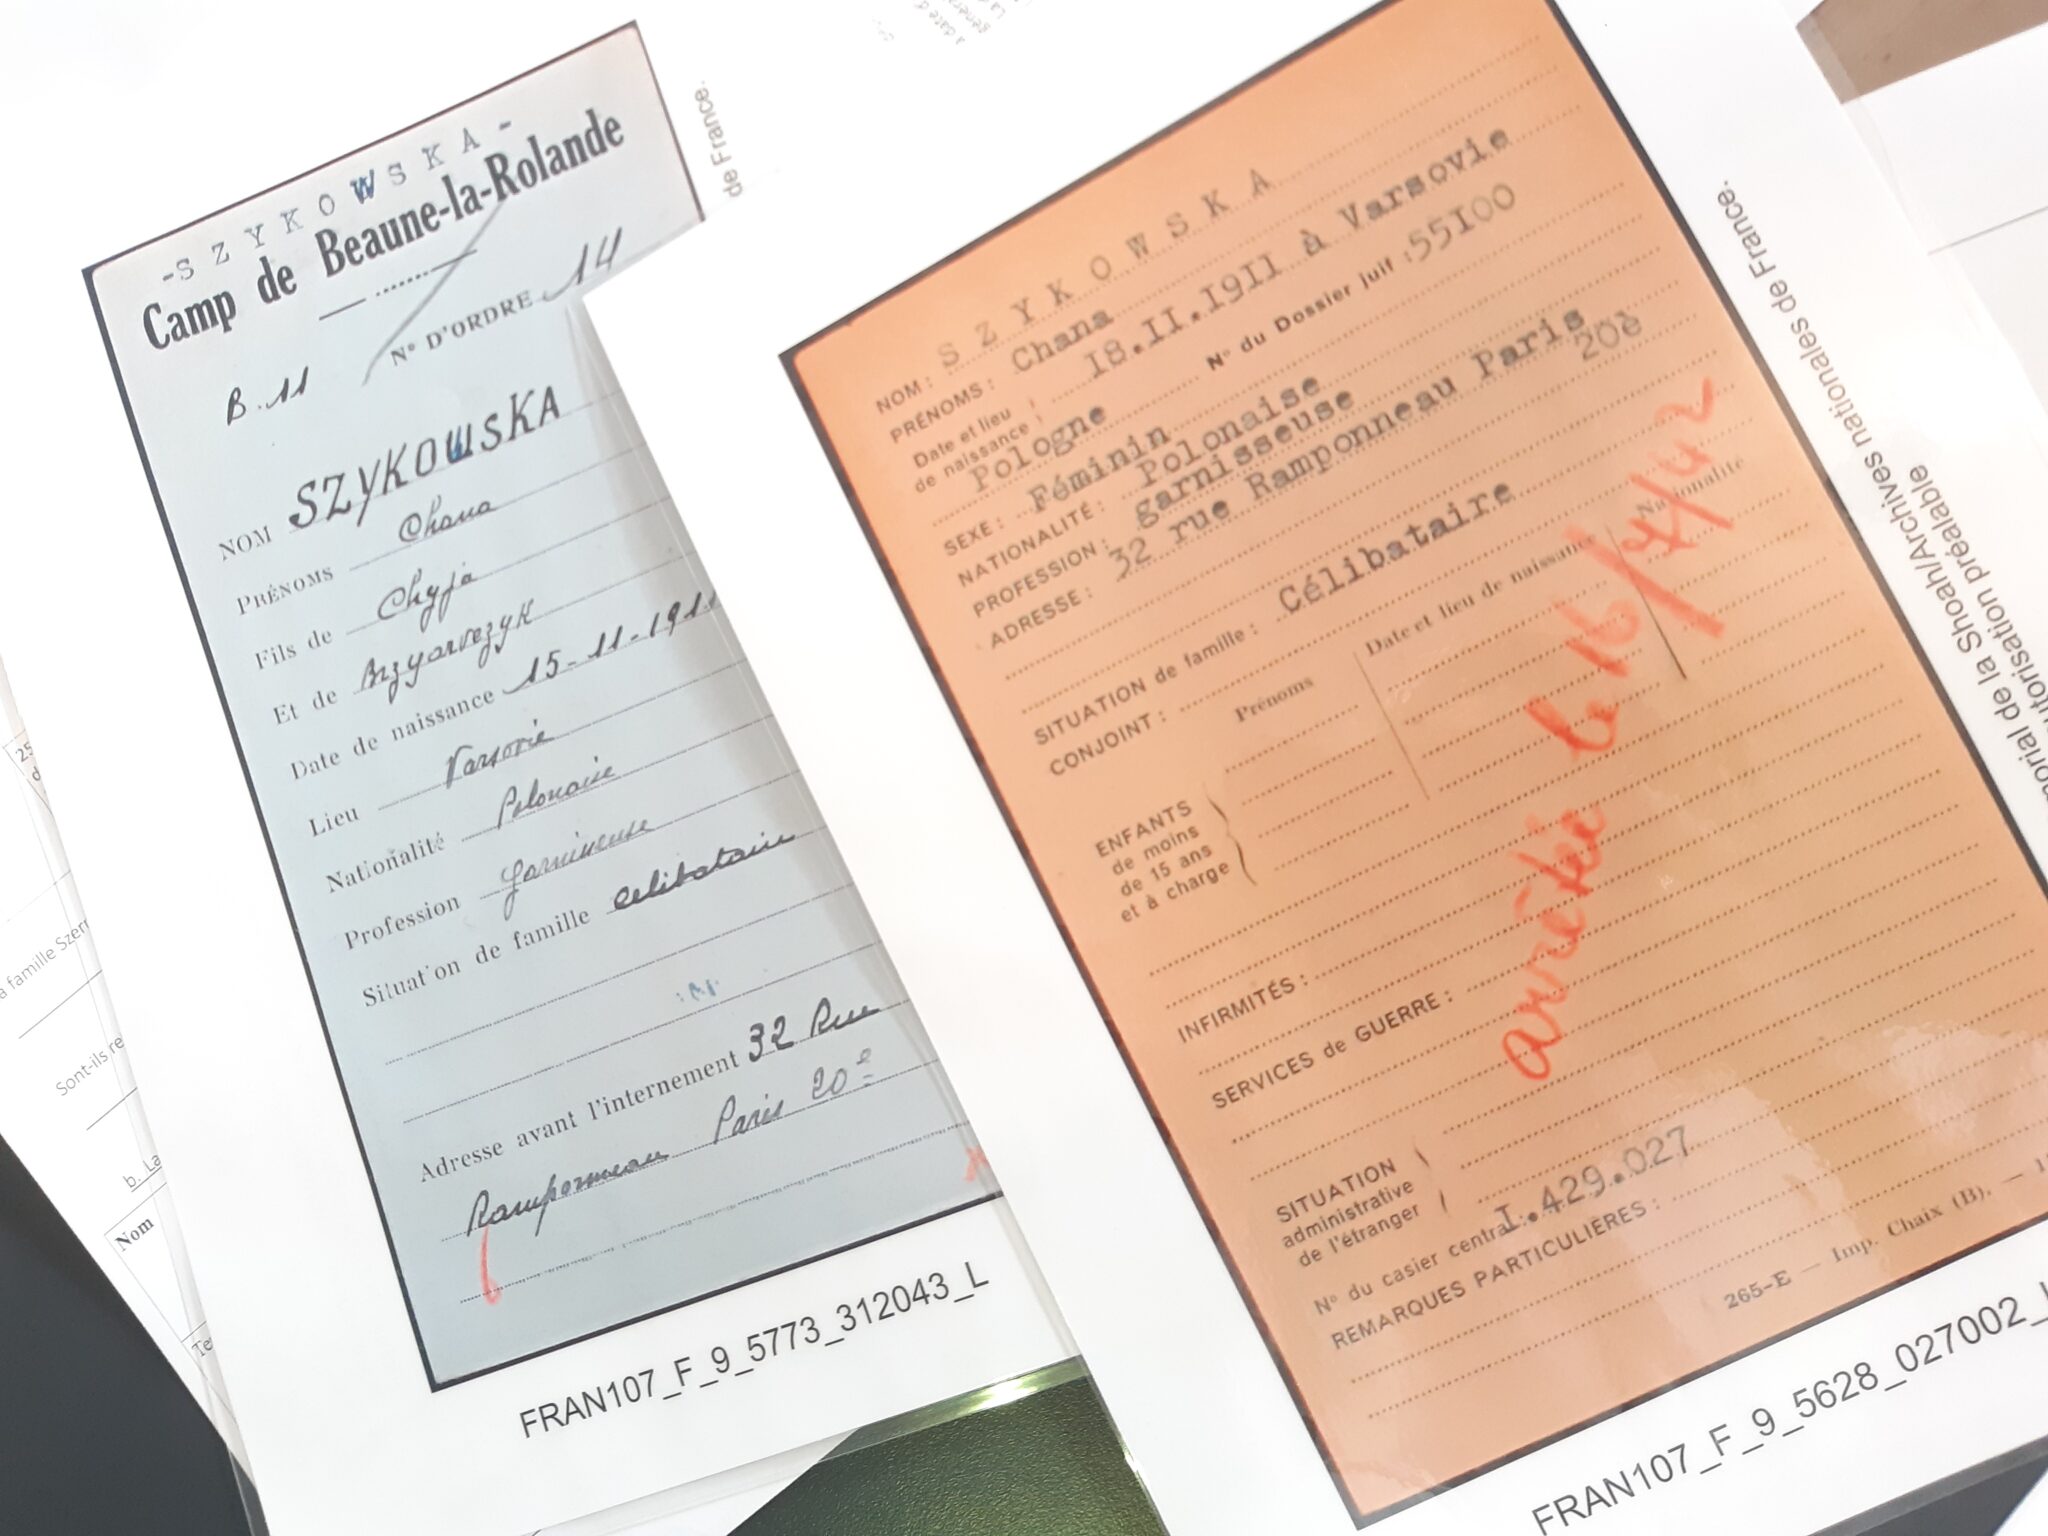 -SZYKOWSKA-
Camp de Beaune-la-Rolande
N° D'ORDRE 14
B.11
NOM SZYKOWSKA
PRÉNOMS Chana
Fils de Chyja
Et de
Date de naissance 15-11-191
Lieu Varsovie
Nationalité Polonaise
Profession garnisseuse
Situation de famille celibataire
Adresse avant l'internement 32 Rue
Ramponneau Paris 20e
FRAN107_F_9_5773_312043_L
de France.
NOM: SZYKOWSKA
PRÉNOMS: Chana
Date et lieu de naissance: 18.II.1911 à Varsovie
Pologne N° du Dossier juif: 55I00
SEXE: Féminin
NATIONALITÉ: Polonaise
PROFESSION: garnisseuse
ADRESSE: 32 rue Ramponneau Paris
20è
SITUATION de famille: Célibataire
CONJOINT:
Prénoms Date et lieu de naissance Nationalité
ENFANTS
de moins
de 15 ans
et à charge
arrêtée le 16/7/42
INFIRMITÉS:
SERVICES de GUERRE:
SITUATION
administrative
de l'étranger
N° du casier central: I.429.027
REMARQUES PARTICULIÈRES:
265-E — Imp. Chaix (B). —
FRAN107_F_9_5628_027002_
orial de la Shoah/Archives nationales de France.
utorisation préalable
a famille Szer
Sont-ils re
b. La
Nom